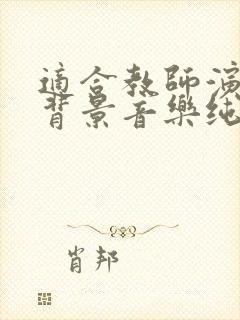 適合教師演
背景音樂純
肖邦